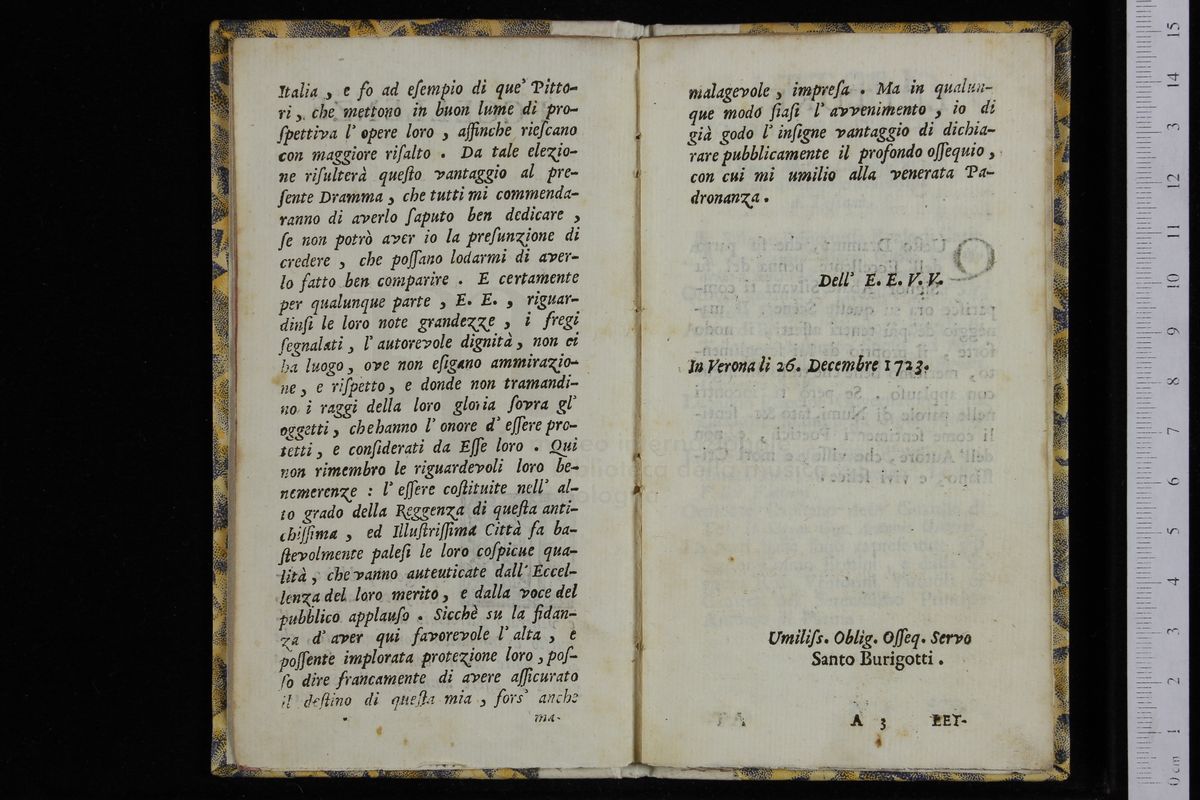 Italia, e fo ad eſempio di que' Pitto-
ri, che mettono in buon lume di pro-
ſpettiva l' opere loro, affinche rieſcano
con maggiore riſalto. Da tale elezio-
ne riſulterà queſto vantaggio al pre-
ſente Dramma, che tutti mi commenda-
ranno di averlo ſaputo ben dedicare,
ſe non potrò aver io la preſunzione di
credere, che poſſano lodarmi di aver-
lo fatto ben comparire. E certamente
per qualunque parte, E. E., riguar-
dinſi le loro note grandezze, i fregi
ſegnalati, l' autorevole dignità, non ci
ha luogo, ove non eſigano ammirazio-
ne, e riſpetto, e donde non tramandi-
no i raggi della loro gloria ſovra gl'
oggetti, che hanno l' onore d' eſſere pro-
tetti, e conſiderati da Eſſe loro. Qui
non rimembro le riguardevoli loro be-
nemerenze: l' eſſere coſtituite nell' al-
to grado della Reggenza di queſta anti-
chiſſima, ed Illuſtriſſima Città fa ba-
ſtevolmente paleſi le loro coſpicue qua-
lità, che vanno auteuticate dall' Eccel-
lenza del loro merito, e dalla voce del
pubblico applauſo. Sicchè su la fidan-
za d' aver qui favorevole l' alta, e
poſſente implorata protezione loro, poſ-
ſo dire francamente di avere aſſicurato
il deſtino di queſta mia, fors' anche
ma-
malagevole, impreſa. Ma in qualun-
que modo ſiaſi l' avvenimento, io di
già godo l' inſigne vantaggio di dichia-
rare pubblicamente il profondo oſſequio,
con cui mi umilio alla venerata Pa-
dronanza.
Dell' E. E. V. V.
In Verona li 26. Decembre 1723.
Umiliſs. Oblig. Oſſeq. Servo
Santo Burigotti.
A 3 LET-